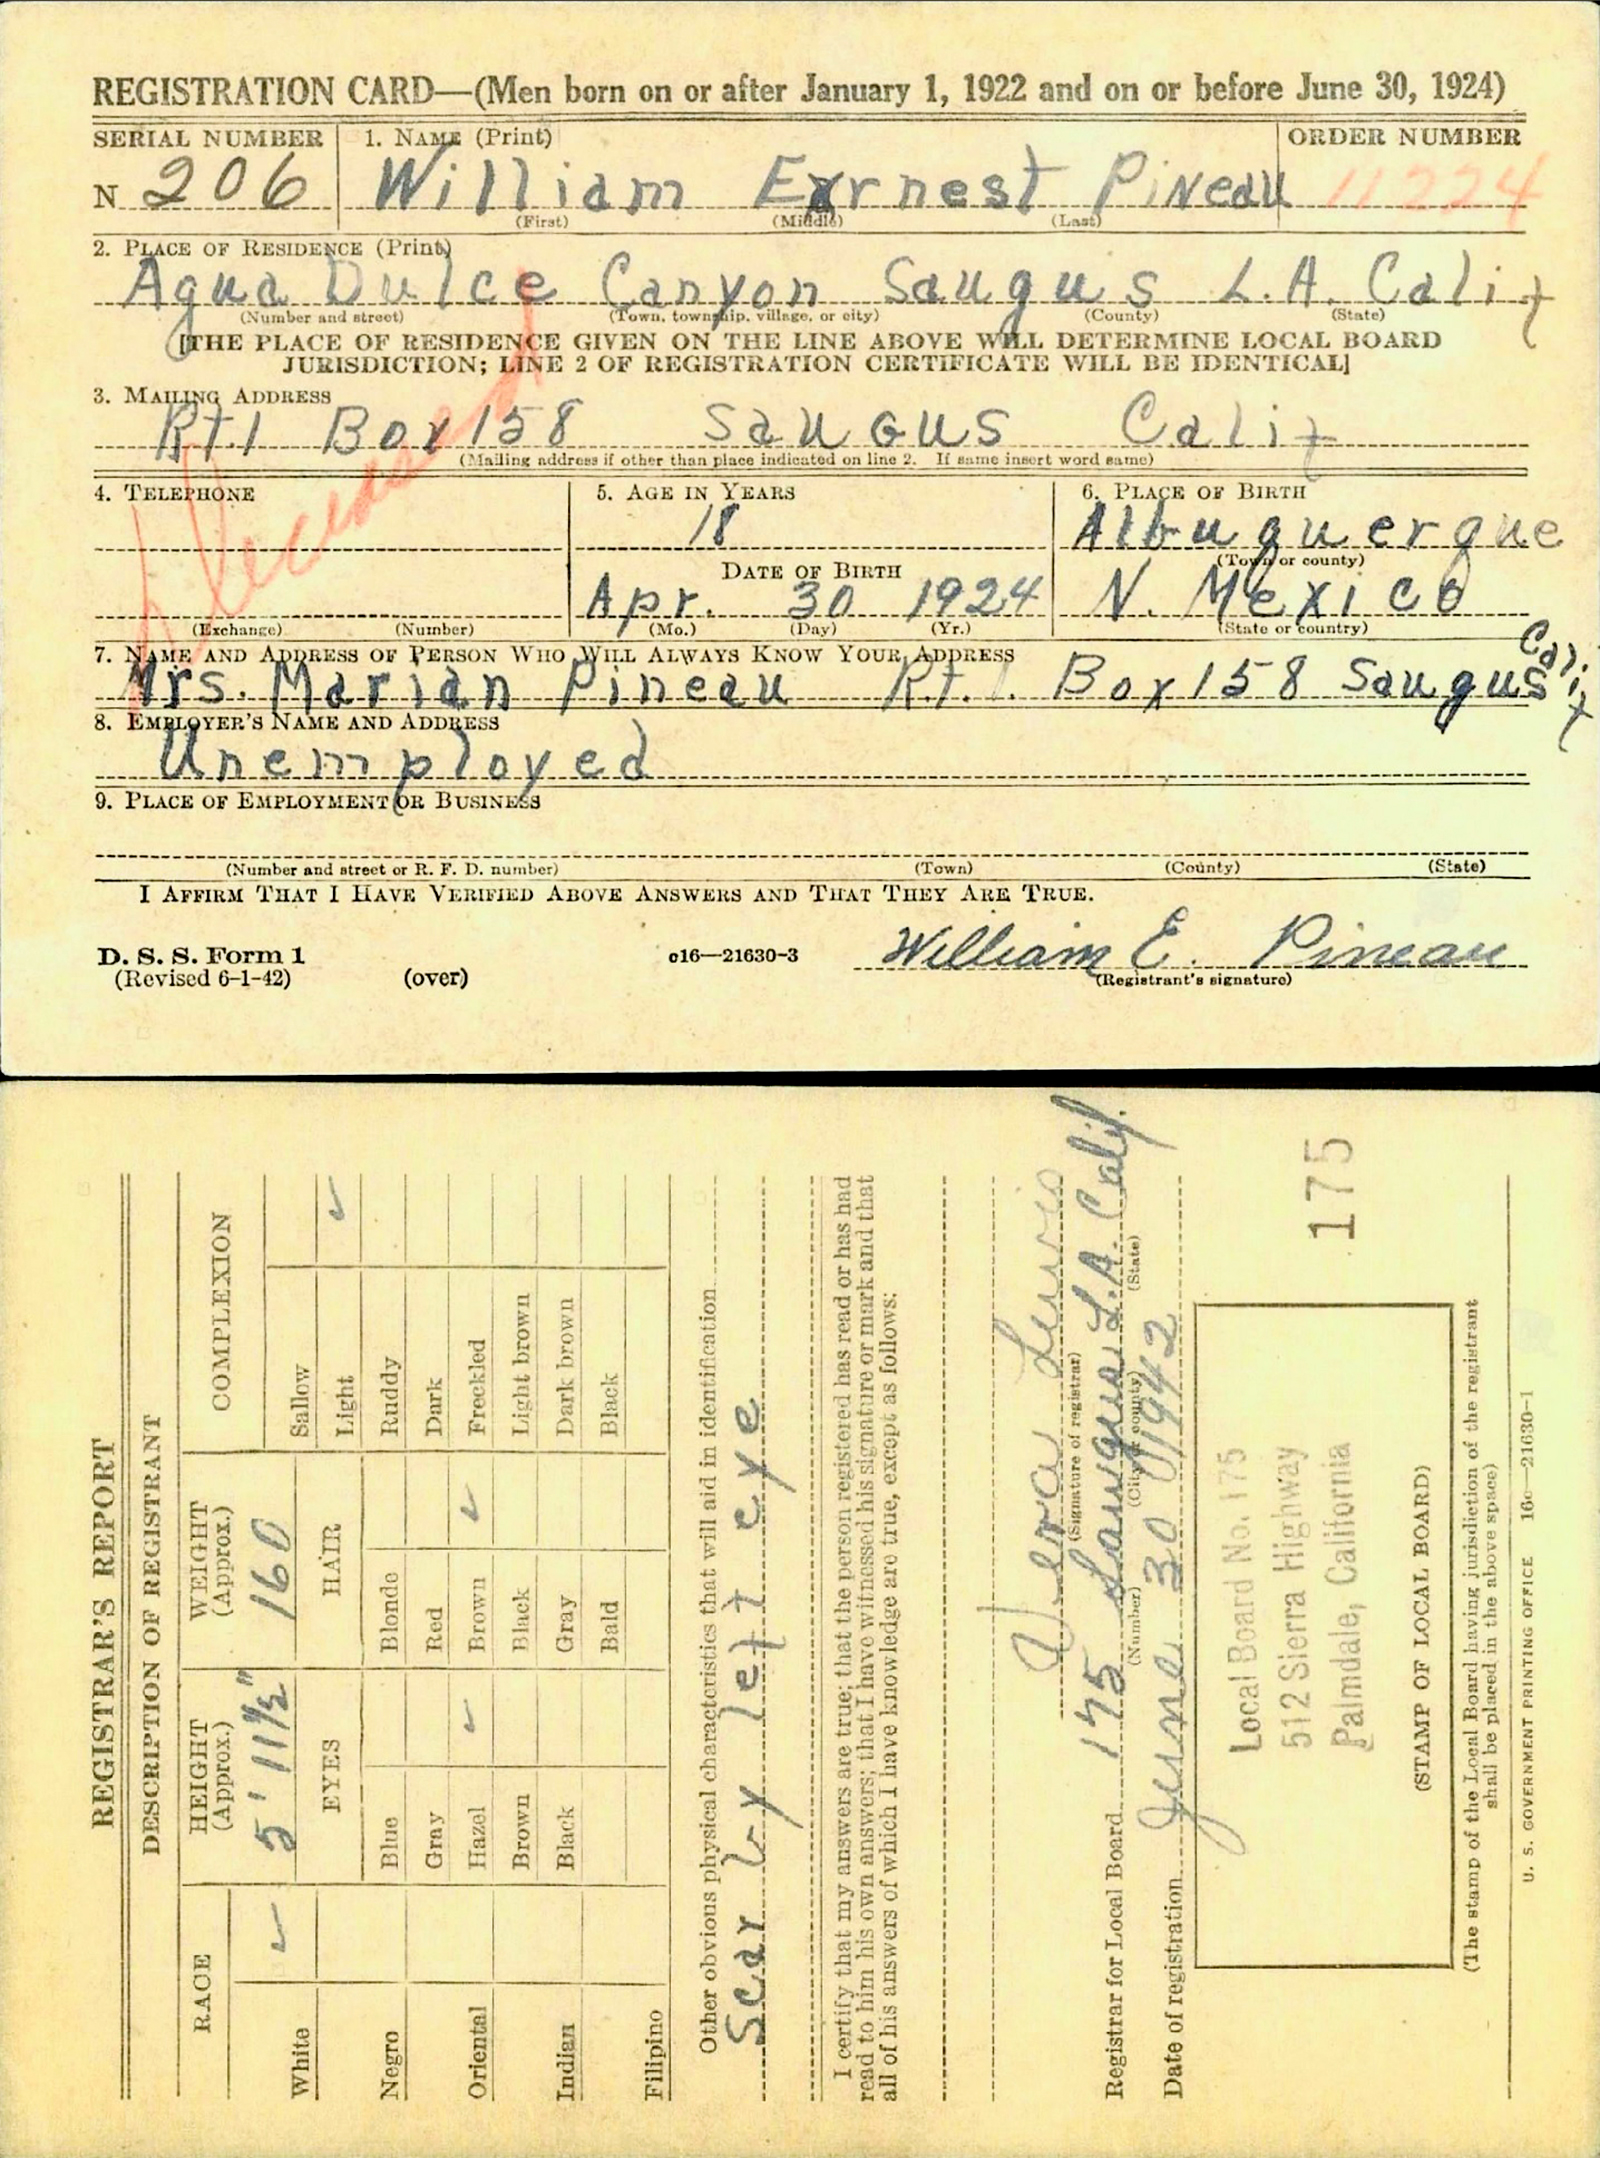 REGISTRATION CARD—(Men born on or after January 1, 1922 and on or before June 30, 1924)
SERIAL NUMBER 1. NAME (Print) ORDER NUMBER
N 206 William Ernest Pineau 11224
(First) (Middle) (Last)
2. PLACE OF RESIDENCE (Print)
Agua Dulce Canyon Saugus L.A. Calif
(Number and street) (Town, township, village, or city) (County) (State)
[THE PLACE OF RESIDENCE GIVEN ON THE LINE ABOVE WILL DETERMINE LOCAL BOARD
JURISDICTION; LINE 2 OF REGISTRATION CERTIFICATE WILL BE IDENTICAL]
3. MAILING ADDRESS
Rt.1 Box 158 Saugus Calif
(Mailing address if other than place indicated on line 2. If same insert word same)
Deceased
4. TELEPHONE 5. AGE IN YEARS 6. PLACE OF BIRTH
18 Albuquerque
DATE OF BIRTH (Town or county)
Apr. 30 1924 N. Mexico
(Exchange) (Number) (Mo.) (Day) (Yr.) (State or country)
7. NAME AND ADDRESS OF PERSON WHO WILL ALWAYS KNOW YOUR ADDRESS
Mrs. Marian Pineau Rt. 1. Box 158 Saugus Calif
8. EMPLOYER'S NAME AND ADDRESS
Unemployed
9. PLACE OF EMPLOYMENT OR BUSINESS
(Number and street or R. F. D. number) (Town) (County) (State)
I AFFIRM THAT I HAVE VERIFIED ABOVE ANSWERS AND THAT THEY ARE TRUE.
William E. Pineau
D. S. S. Form 1 c16—21630-3 (Registrant's signature)
(Revised 6-1-42) (over)
REGISTRAR'S REPORT
DESCRIPTION OF REGISTRANT
RACE HEIGHT (Approx.) WEIGHT (Approx.) COMPLEXION
5' 11½" 160
White ✓ EYES HAIR Sallow
Light ✓
Negro Blue Blonde Ruddy
Gray Red Dark
Oriental Hazel ✓ Brown ✓ Freckled
Brown Black Light brown
Indian Black Gray Dark brown
Bald Black
Filipino
Other obvious physical characteristics that will aid in identification
Scar by left eye
I certify that my answers are true; that the person registered has read or has had
read to him his own answers; that I have witnessed his signature or mark and that
all of his answers of which I have knowledge are true, except as follows:
Lewis
(Signature of registrar)
Registrar for Local Board 175 Saugus L.A. Calif.
(Number) (City or county) (State)
Date of registration June 30 1942
Local Board No. 175
512 Sierra Highway
Palmdale, California
175
(STAMP OF LOCAL BOARD)
(The stamp of the Local Board having jurisdiction of the registrant
shall be placed in the above space)
U. S. GOVERNMENT PRINTING OFFICE 16c—21630-1